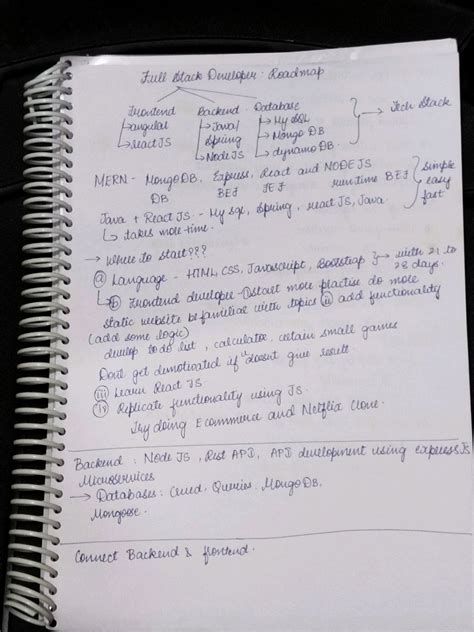 Full Stack Developer: Roadmap
Frontend Backend Database
→ angular → Java/ → My SQL → Tech Stack
→ react JS Spring → Mongo DB
→ Node JS → dynamo DB
MERN - MongoDB, Express, React and NODE JS
DB BEF FEF runtime BEF simple easy fast
Java + React JS - My sql, Spring, react JS, Java.
↳ takes more time.
→ Where to start???
(a) Language - HTML, CSS, Javascript, Bootstrap } → with 21 to 28 days.
→ (b) Frontend developer - start more practise do more
static website be familiar with topics (ii) add functionality
(add some logic)
develop to do list, calculator, certain small games
Dont get demotivated if doesnt give result
(iii) Learn React JS
(iv) Replicate functionality using JS.
Try doing Ecommerce and Netflix Clone.
Backend : Node JS, Rest API, API development using express JS
Microservices
→ Databases : Crud. Queries : Mongo DB.
Mongoose.
Connect Backend & frontend.